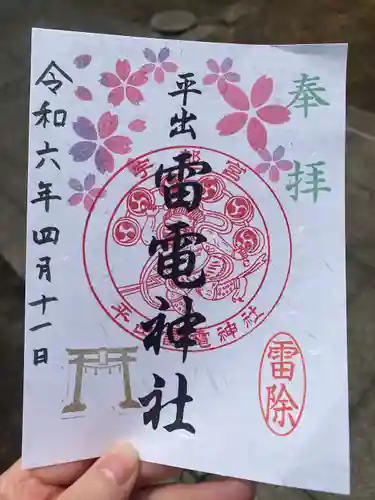 奉拝
平出
雷電神社
宇都宮
平出雷電神社
雷除
令和六年四月十一日